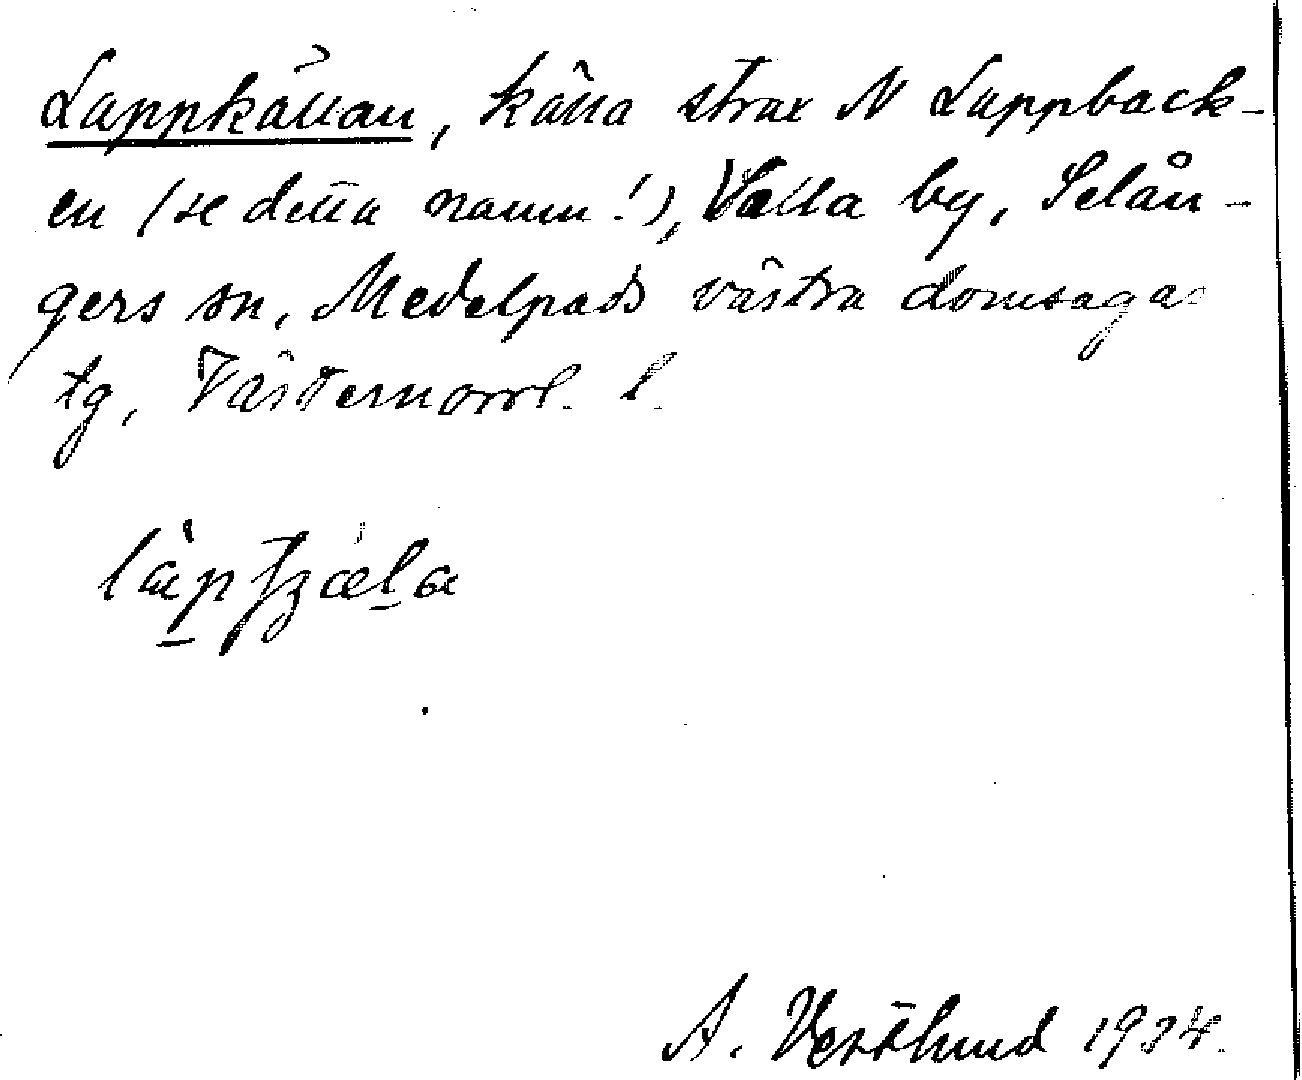 Lappkällan, källa strax N Lappback-
en (se detta namn!), Valla by, Selån-
gers sn, Medelpads västra domsagas
tg, Västernorrl. l.
A. Westlund 1934.